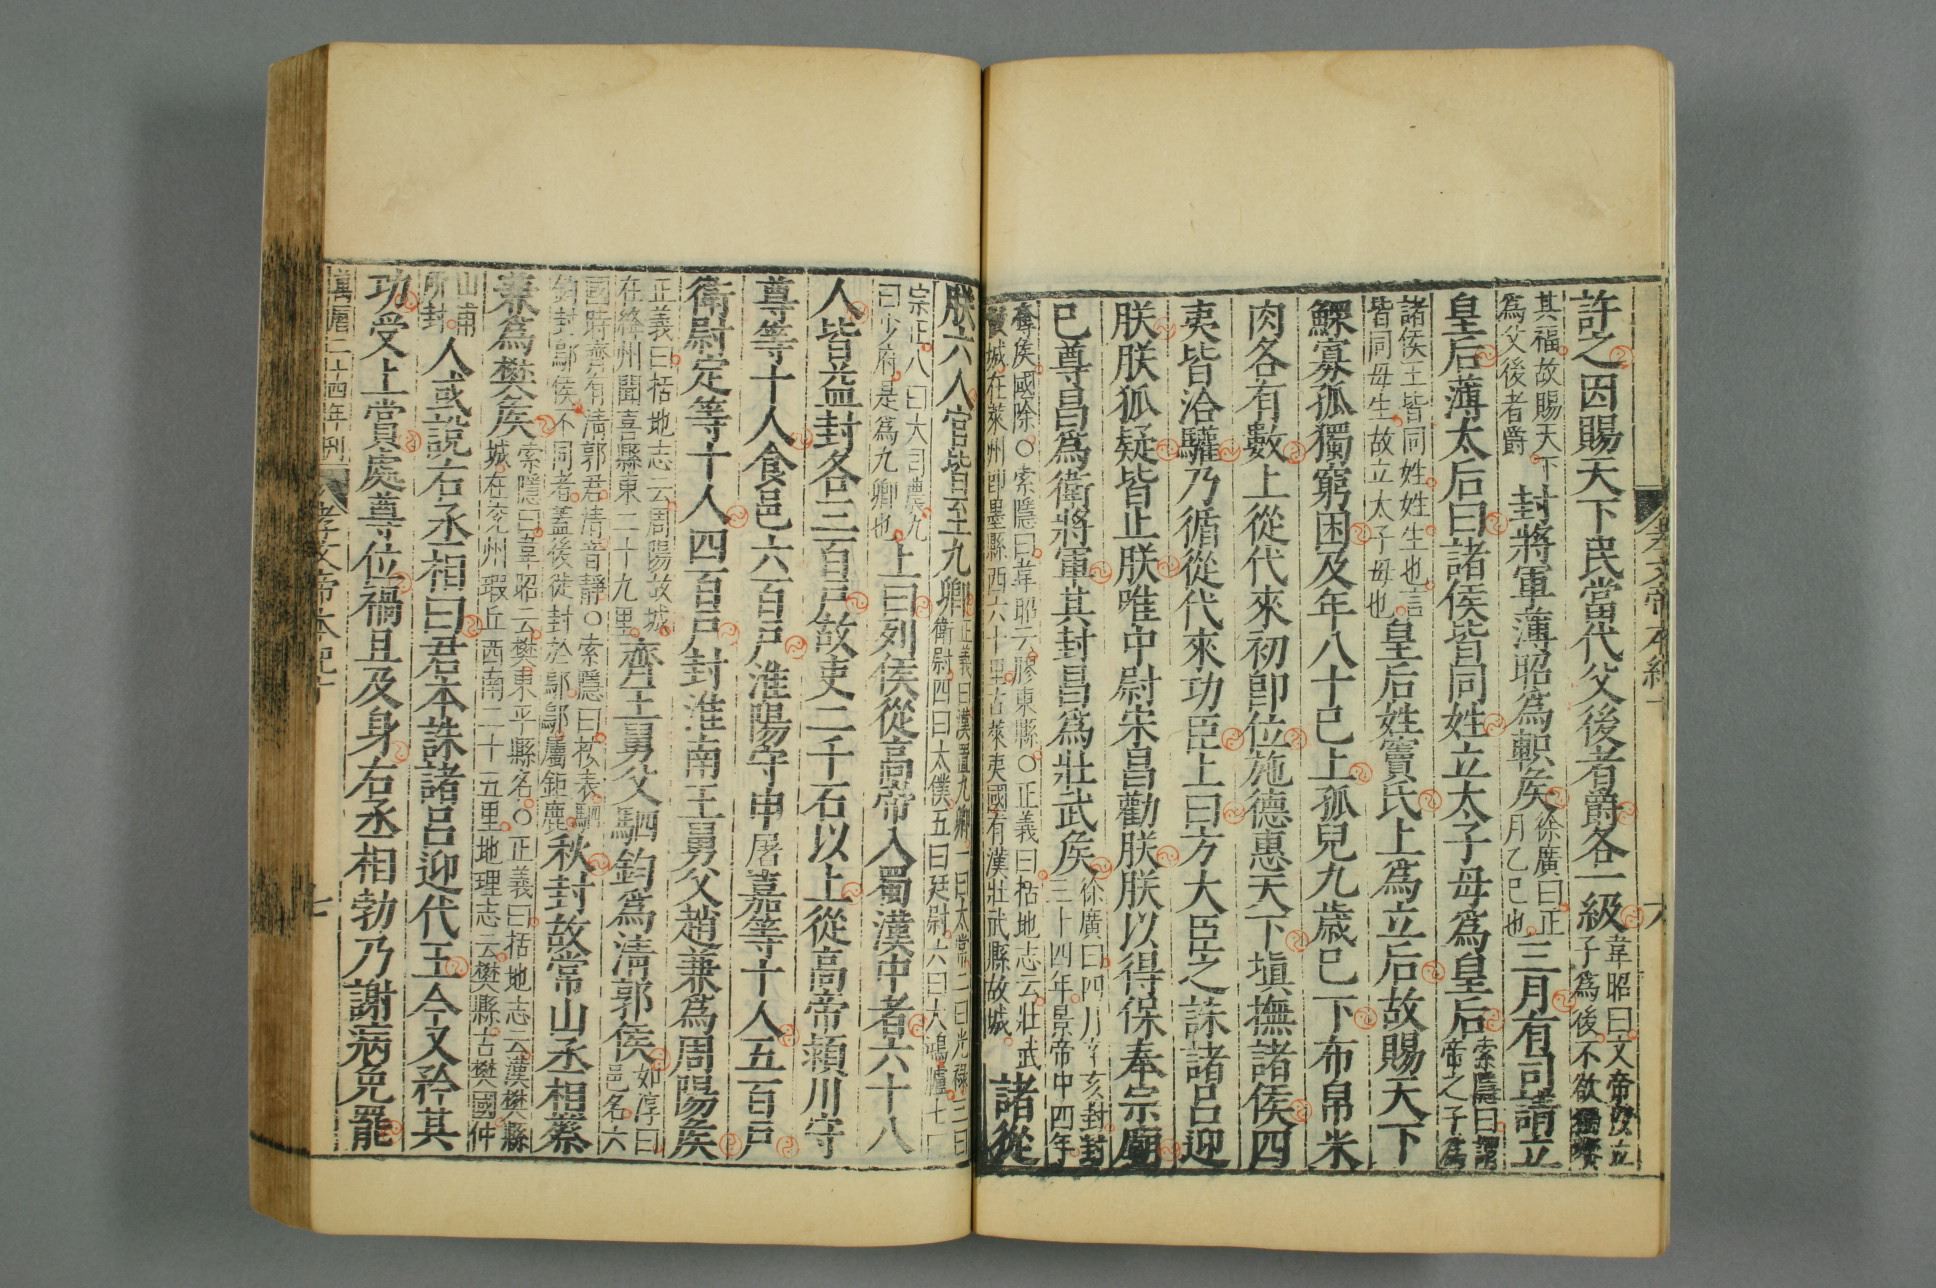 許之因賜天下民當代父後者爵各一級韋昭曰文帝以立
子爲後不欲獨饗
其福故賜天下
爲父後者爵封將軍薄昭爲軹侯徐廣曰正
月乙巳也三月有司請立
皇后薄太后曰諸侯皆同姓立太子母爲皇后索隱曰謂
帝之子爲
諸侯王皆同姓姓生也言
皆同母生故立太子母也皇后姓竇氏上爲立后故賜天下
鰥寡孤獨窮困及年八十已上孤兒九歲已下布帛米
肉各有數上從代來初卽位施德惠天下塡撫諸侯四
夷皆洽驩乃循從代來功臣上曰方大臣之誅諸呂迎
朕朕狐疑皆止朕唯中尉宋昌勸朕朕以得保奉宗廟
已尊昌爲衛將軍其封昌爲壯武侯徐廣曰四月辛亥封封
三十四年景帝中四年
奪侯國除○索隱曰韋昭云膠東縣○正義曰括地志云壯武
城在萊州卽墨縣西六十里古萊夷國有漢壯武縣故城諸從
孝文帝本紀十
六
朕六人官皆至九卿正義曰漢置九卿一曰太常二曰光祿三曰
衛尉四曰太僕五曰廷尉六曰大鴻臚七曰
宗正八曰大司農九
曰少府是爲九卿也上曰列侯從高帝入蜀漢中者六十八
人皆益封各三百戶故吏二千石以上從高帝潁川守
尊等十人食邑六百戶淮陽守申屠嘉等十人五百戶
衛尉定等十人四百戶封淮南王舅父趙兼爲周陽侯
正義曰括地志云周陽故城
在絳州聞喜縣東二十九里齊王舅父駟鈞爲淸郭侯如淳曰
邑名六
國時齊有淸郭君淸音靜○索隱曰按表駟
鈞封鄔侯不同者蓋後徙封於鄔鄔屬鉅鹿秋封故常山丞相蔡
兼爲樊侯索隱曰韋昭云樊東平縣名○正義曰括地志云漢樊縣
城在兗州瑕丘西南二十五里地理志云樊縣古樊國仲
山甫
所封人或說右丞相曰君本誅諸呂迎代王今又矜其
功受上賞處尊位禍且及身右丞相勃乃謝病免罷
萬曆二十四年刊
孝文帝本紀十
七